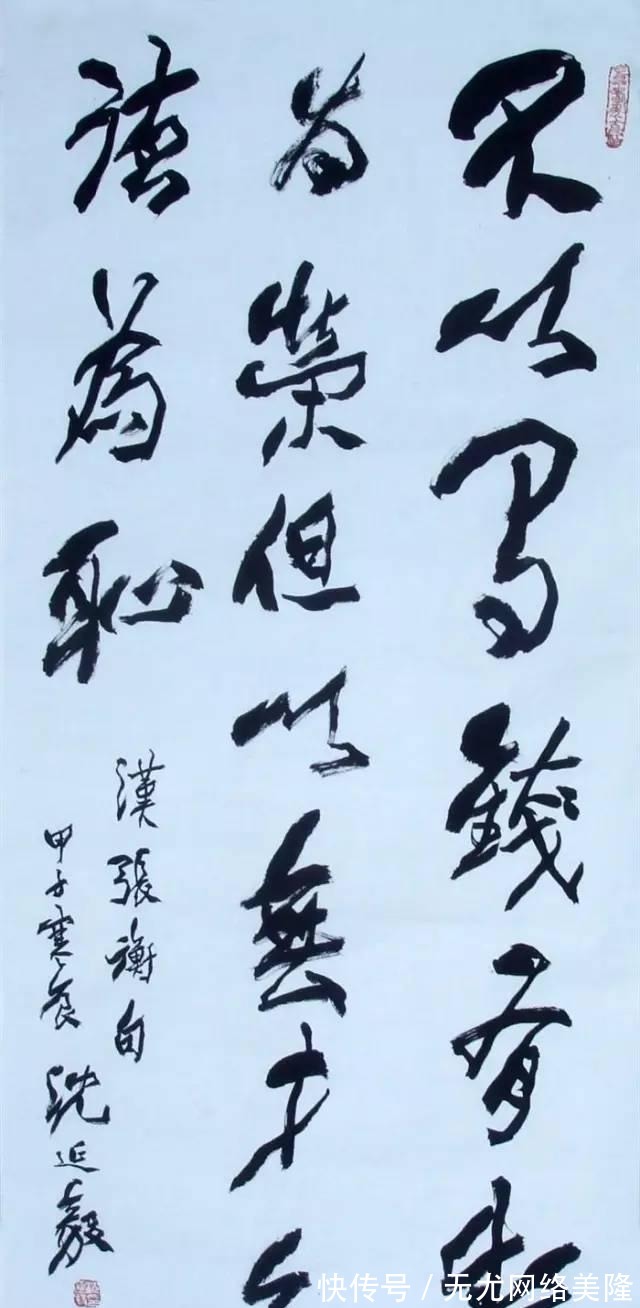 不以錢有
为榮但以無才
德為恥
漢張衡句
甲子寒食沈延毅
快传号/无尤网络美隆